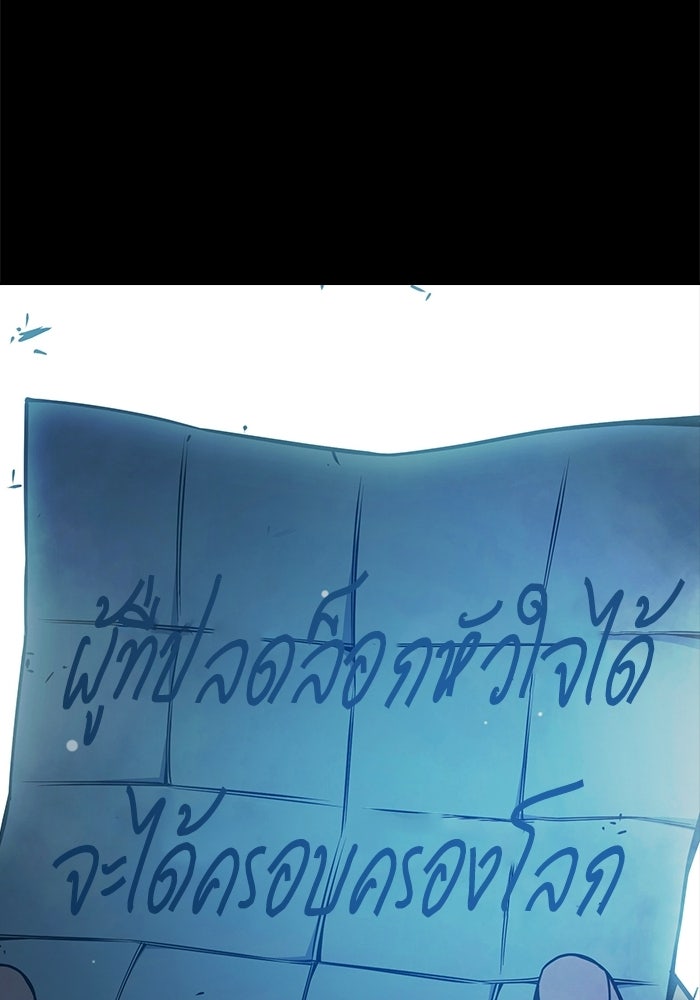 ผู้ที่ปลดล็อกหัวใจได้
จะได้ครอบครองโลก